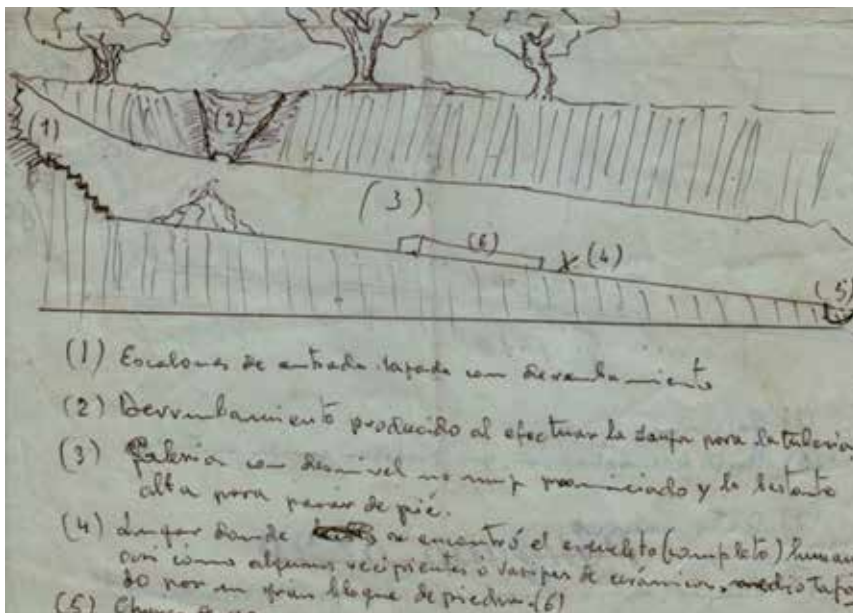 (1)
(2)
(3)
(6)
(4)
(5)
(1) Escalones de entrada tapada con derrumbamiento
(2) Derrumbamiento producido al efectuar la zanja para la tubería
(3) Galeria con desnivel no muy pronunciado y lo bastante
alta para pasar de pié.
(4) Lugar donde se encontró el esqueleto (completo) human
así como algunos recipientes o vasijas de cerámica, medio tapa
do por un gran bloque de piedra. (6)
(5)